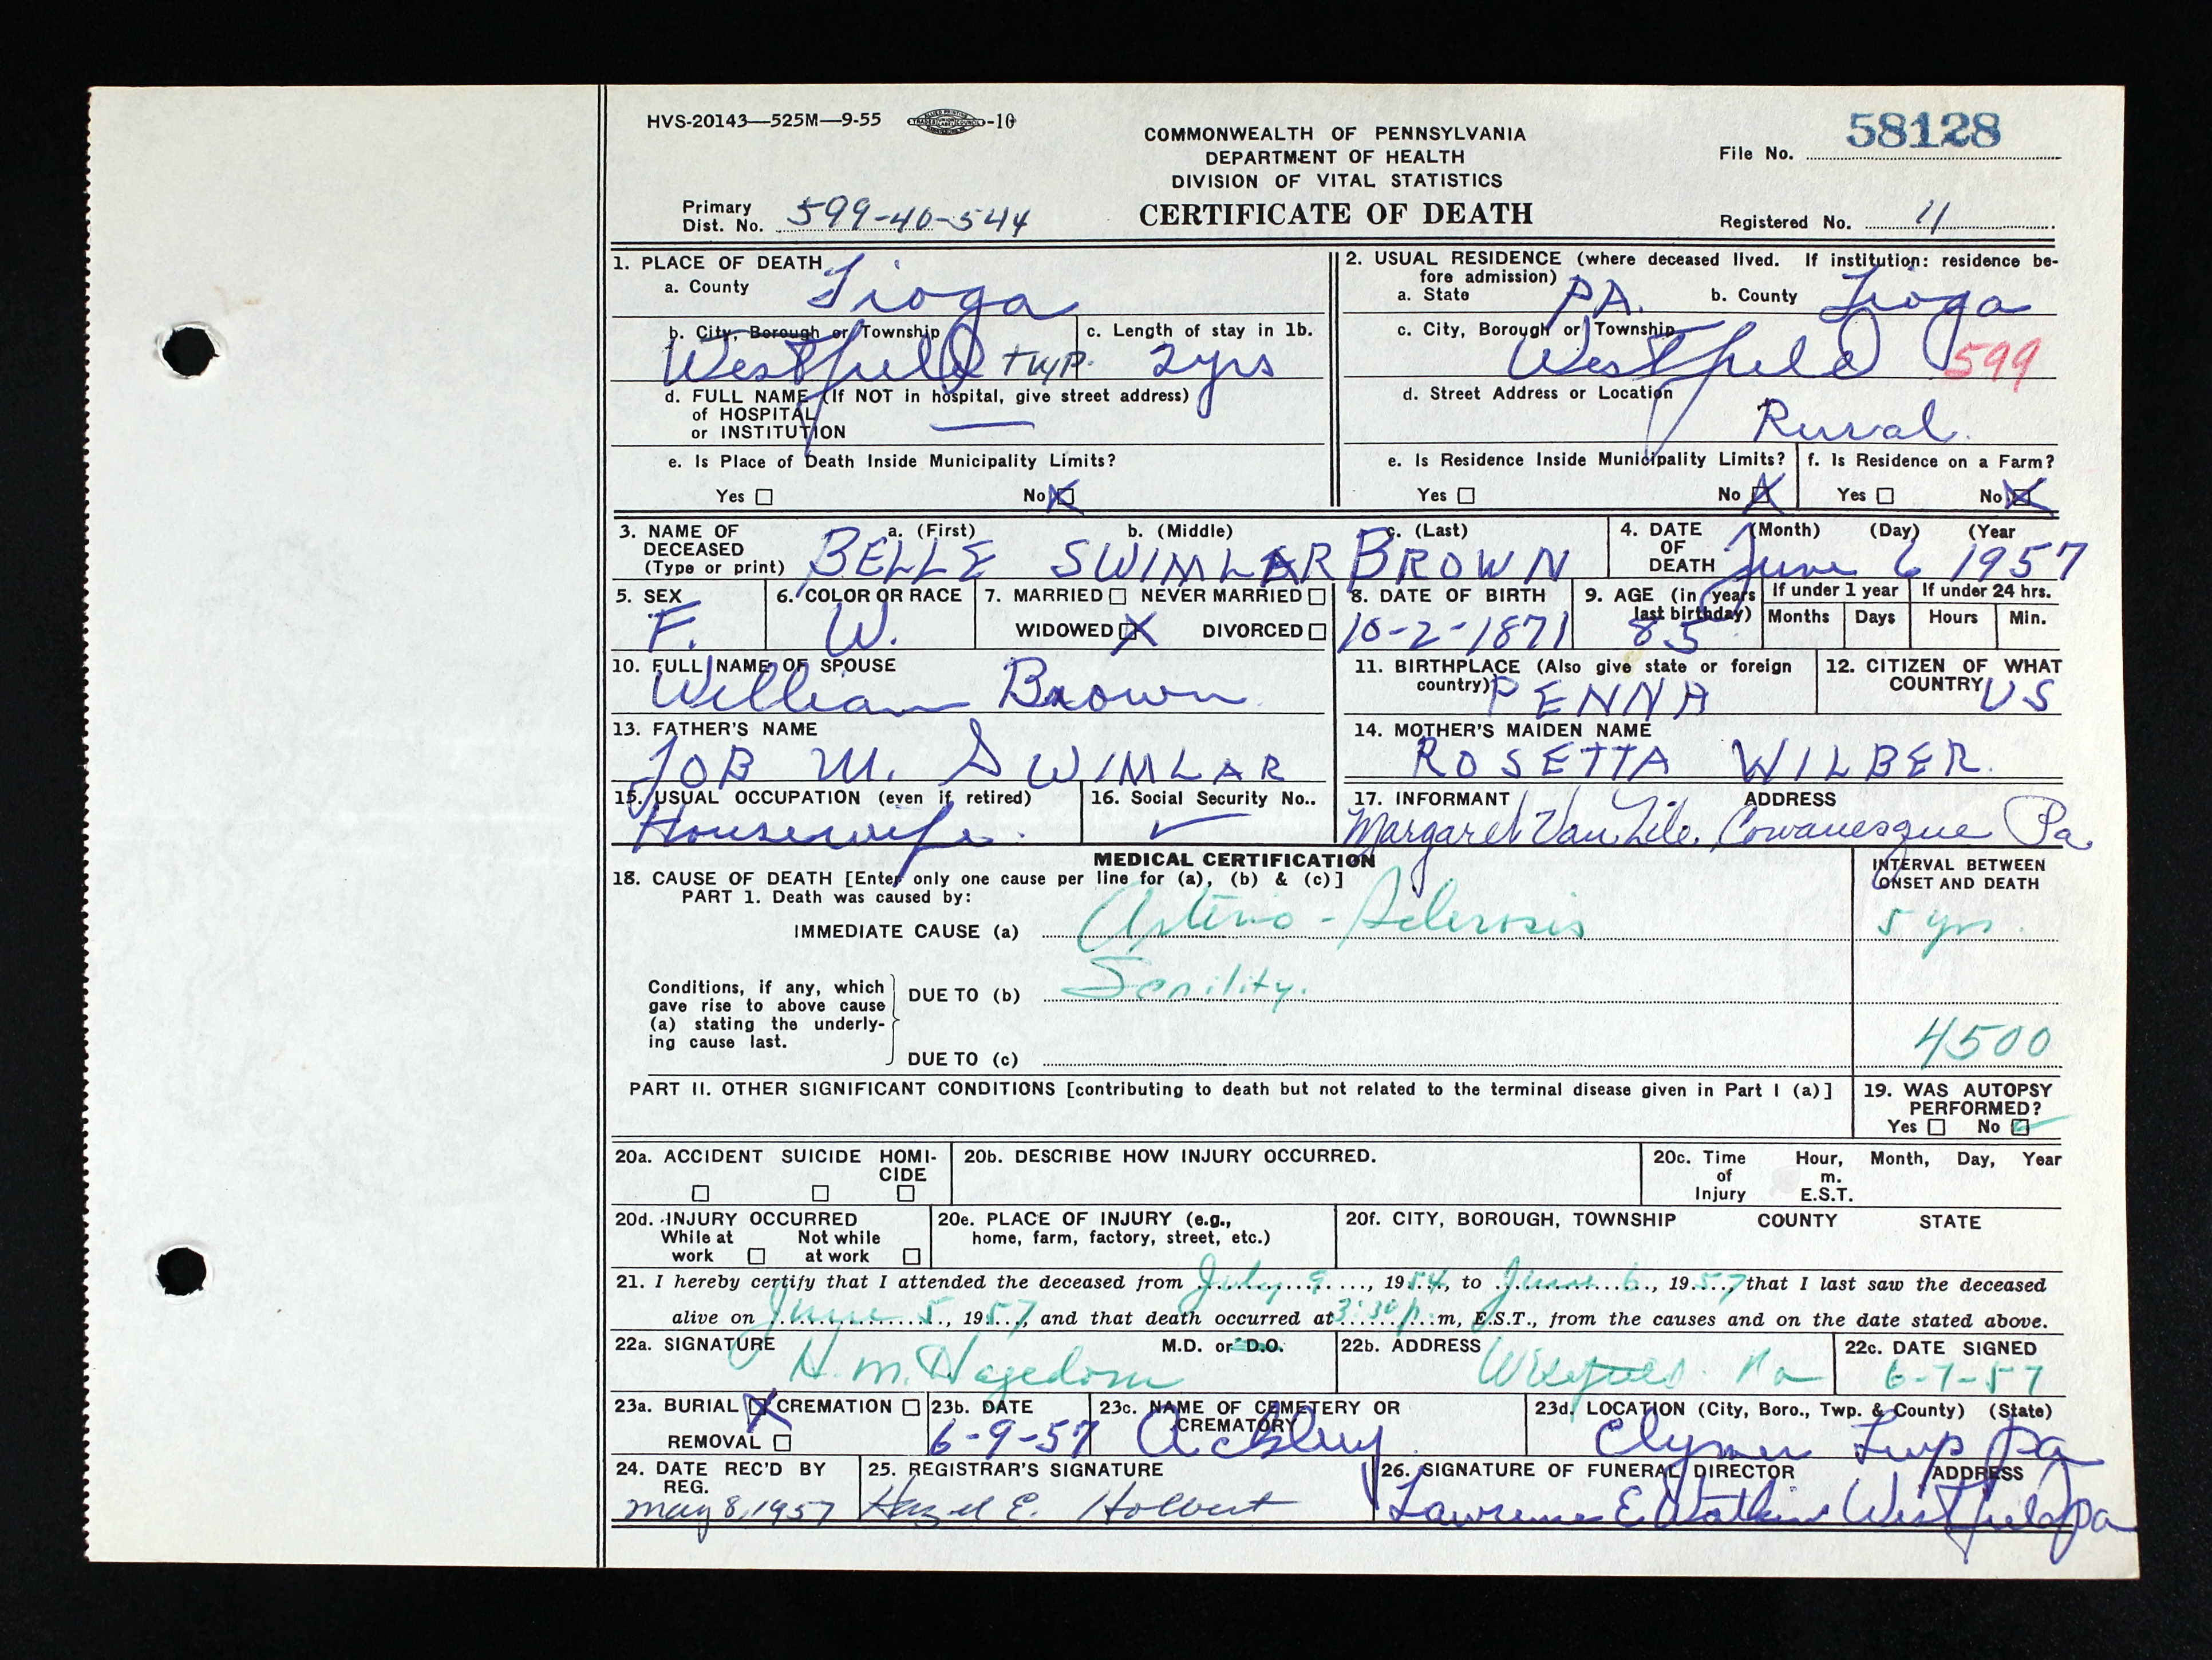 HVS-20143—525M—9-55 -10
COMMONWEALTH OF PENNSYLVANIA
DEPARTMENT OF HEALTH
DIVISION OF VITAL STATISTICS
CERTIFICATE OF DEATH
File No. 58128
Primary Dist. No. 599-40-544
Registered No. 11
1. PLACE OF DEATH
a. County Tioga
b. City, Borough or Township Westfield twp.
c. Length of stay in 1b. 2yrs
d. FULL NAME (If NOT in hospital, give street address) of HOSPITAL or INSTITUTION —
e. Is Place of Death Inside Municipality Limits?
Yes ☐ No ☒
2. USUAL RESIDENCE (where deceased lived. If institution: residence be-
fore admission)
a. State PA. b. County Tioga
c. City, Borough or Township Westfield 599
d. Street Address or Location
Rural.
e. Is Residence Inside Municipality Limits? f. Is Residence on a Farm?
Yes ☐ No ☒ Yes ☐ No ☒
3. NAME OF DECEASED (Type or print) a. (First) b. (Middle) c. (Last)
BELLE SWIMLAR BROWN
4. DATE OF DEATH (Month) (Day) (Year
June 6 1957
5. SEX F.
6. COLOR OR RACE W.
7. MARRIED ☐ NEVER MARRIED ☐
WIDOWED ☒ DIVORCED ☐
8. DATE OF BIRTH 10-2-1871
9. AGE (in years last birthday) 85
If under 1 year Months Days
If under 24 hrs. Hours Min.
10. FULL NAME OF SPOUSE
William Brown
11. BIRTHPLACE (Also give state or foreign country) PENNA
12. CITIZEN OF WHAT COUNTRY US
13. FATHER'S NAME
JOB M. SWIMLAR
14. MOTHER'S MAIDEN NAME
ROSETTA WILBER.
15. USUAL OCCUPATION (even if retired)
Housewife.
16. Social Security No..
17. INFORMANT ADDRESS
Margaret Van Zile. Cowanesque Pa
MEDICAL CERTIFICATION
18. CAUSE OF DEATH [Enter only one cause per line for (a), (b) & (c)]
PART 1. Death was caused by:
INTERVAL BETWEEN ONSET AND DEATH
IMMEDIATE CAUSE (a) Arterio-Sclerosis 5 yrs.
Conditions, if any, which gave rise to above cause (a) stating the underly-ing cause last.
DUE TO (b) Senility.
DUE TO (c)
4500
PART II. OTHER SIGNIFICANT CONDITIONS [contributing to death but not related to the terminal disease given in Part I (a)]
19. WAS AUTOPSY PERFORMED?
Yes ☐ No ☑
20a. ACCIDENT SUICIDE HOMI-CIDE
☐ ☐ ☐
20b. DESCRIBE HOW INJURY OCCURRED.
20c. Time of Injury Hour, Month, Day, Year
m. E.S.T.
20d. INJURY OCCURRED
While at work ☐ Not while at work ☐
20e. PLACE OF INJURY (e.g., home, farm, factory, street, etc.)
20f. CITY, BOROUGH, TOWNSHIP COUNTY STATE
21. I hereby certify that I attended the deceased from July 9, 1954, to June 6, 1957 that I last saw the deceased
alive on June 5, 1957, and that death occurred at 3:30 p. m, E.S.T., from the causes and on the date stated above.
22a. SIGNATURE M.D. or D.O.
H. M. Hagedorn
22b. ADDRESS Westfield. Pa
22c. DATE SIGNED
6-7-57
23a. BURIAL ☒ CREMATION ☐
REMOVAL ☐
23b. DATE
6-9-57
23c. NAME OF CEMETERY OR CREMATORY
Ackley
23d. LOCATION (City, Boro., Twp. & County) (State)
Clymer Twp Pa
24. DATE REC'D BY REG.
May 8, 1957
25. REGISTRAR'S SIGNATURE
Hazel E. Holbert
26. SIGNATURE OF FUNERAL DIRECTOR ADDRESS
Lawrence E Watkins Westfield Pa